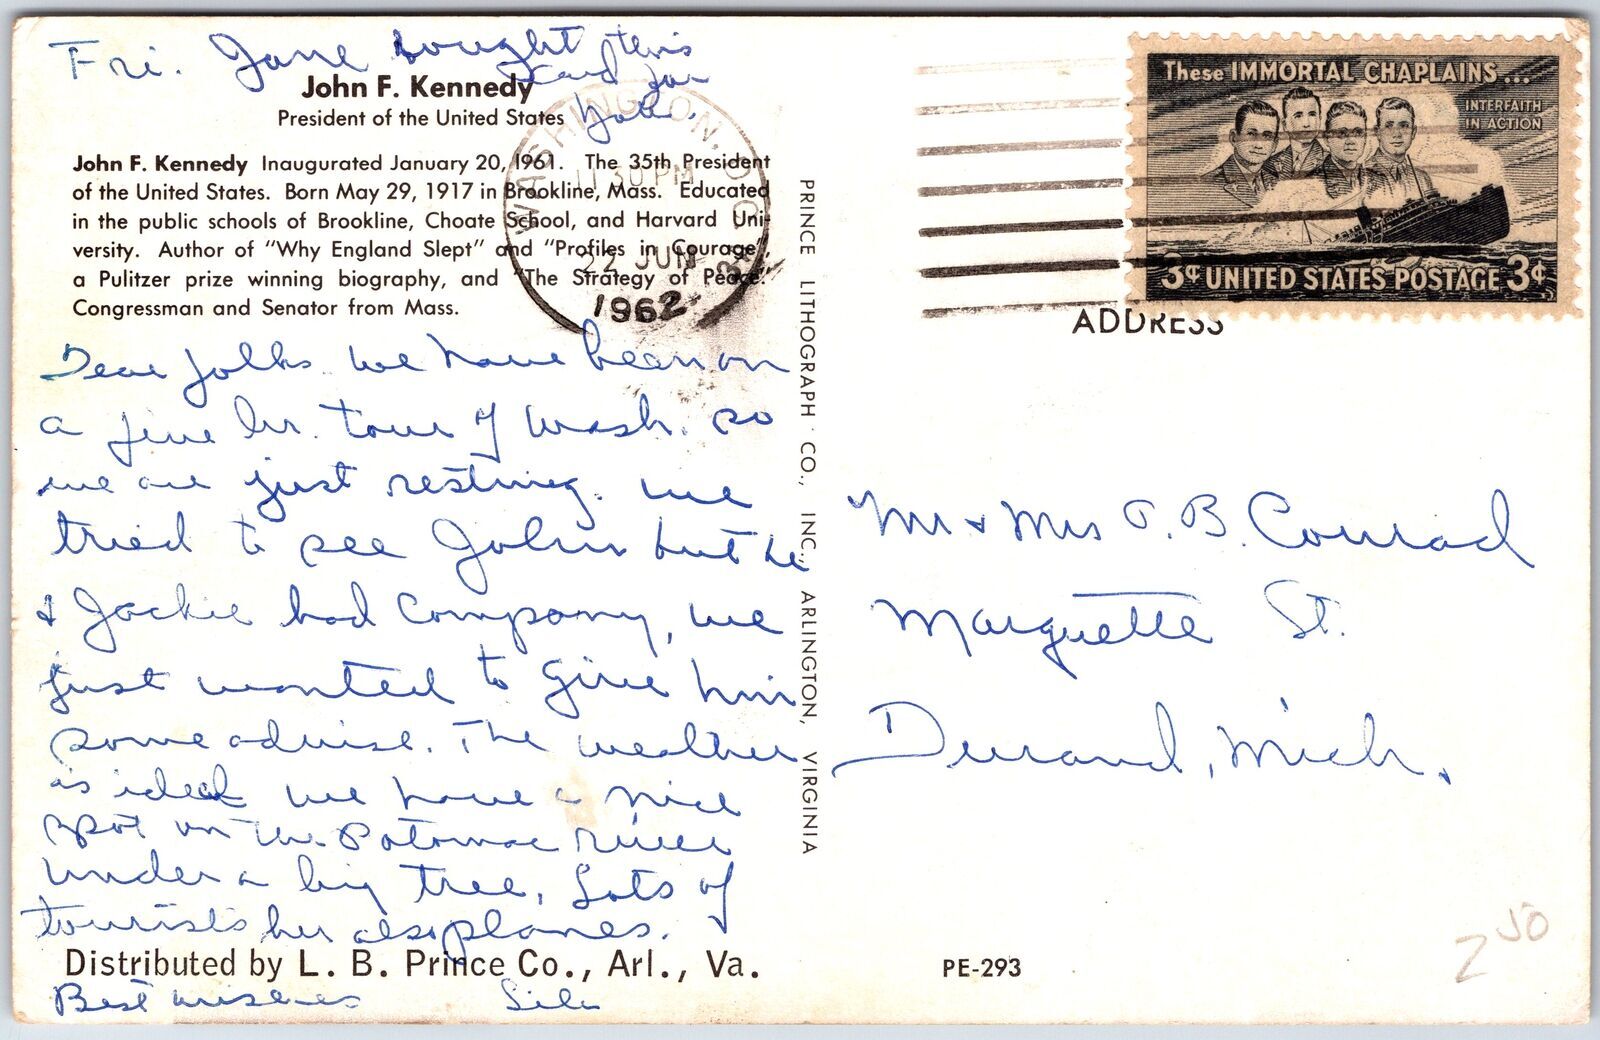 Fri. Jane bought this
card for
you.
John F. Kennedy
President of the United States
John F. Kennedy Inaugurated January 20, 1961. The 35th President
of the United States. Born May 29, 1917 in Brookline, Mass. Educated
in the public schools of Brookline, Choate School, and Harvard Uni-
versity. Author of "Why England Slept" and "Profiles in Courage",
a Pulitzer prize winning biography, and "The Strategy of Peace."
Congressman and Senator from Mass.
WASHINGTON, D.C.
11 30 PM
22 JUN
1962
Dear folks. We have been on
a five hr. tour of Wash. so
we are just resting. We
tried to see John but he
& Jackie had company, we
just wanted to give him
some advise. The weather
is ideal we have a nice
spot on the Potomac river
under a big tree. Lots of
tourists here also planes.
Distributed by L. B. Prince Co., Arl., Va.
Best wishes
PRINCE LITHOGRAPH CO., INC., ARLINGTON, VIRGINIA
These IMMORTAL CHAPLAINS...
INTERFAITH
IN ACTION
3¢ UNITED STATES POSTAGE 3¢
ADDRESS
Mr & Mrs O. B. Conrad
Marquette St.
Durand, Mich.
PE-293
2 50